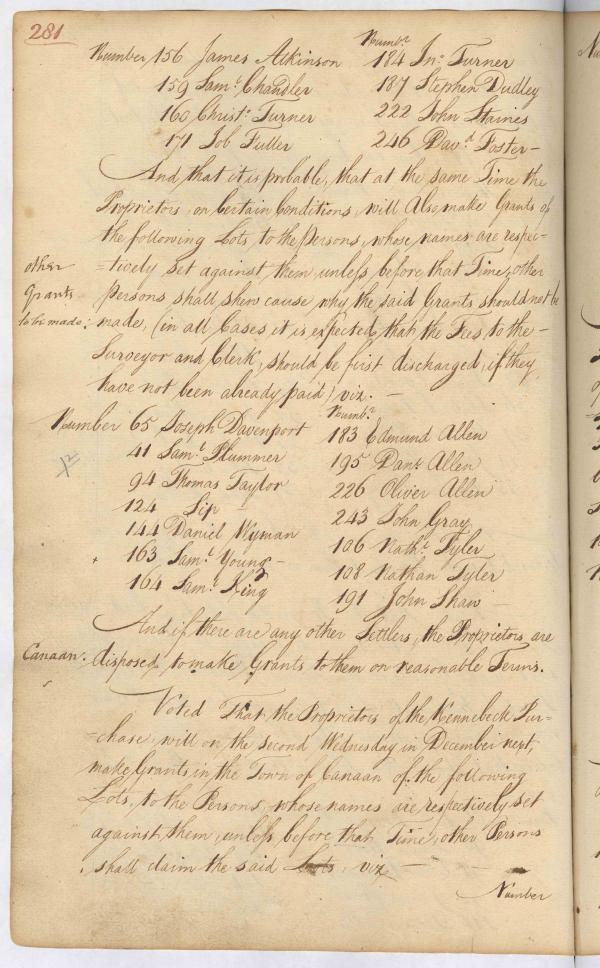 281
Number 156 James Atkinson
159 Saml. Chandler
160 Christr. Turner
171 Job Fuller
Numbr.
184 Jno. Turner
187 Stephen Dudley
222 John Staines
246 Davd. Foster –
And that it is probable, that at the same Time the
Proprietors, on Certain Conditions, will Also make Grants of
the following Lots, to the Persons, whose names are respec=
=tively set against them unless before that Time, other
Persons shall shew cause why the said Grants should not be
made, (in all Cases it is expected that the Fees to the –
Surveyor and Clerk, should be first discharged, if they
have not been already paid) viz. –
other
Grants
to be made:
Number 65 Joseph Davenport
41 Saml. Plummer
94 Thomas Taylor
124 Sip
144 Daniel Wyman
163 Saml. Young –
164 Saml. King
Numbr.
183 Edmund Allen
195 Danl. Allen
226 Oliver Allen
243 John Gray
106 Nathl. Tyler
108 Nathan Tyler
191 John Shaw –
And if there are any other Settlers, the Proprietors are
disposed to make Grants to them on reasonable Terms.
Canaan:
Voted That the Proprietors of the Kennebeck Pur=
=chase, will on the second Wednesday in December next,
make Grants in the Town of Canaan of the following
Lots, to the Persons, whose names are respectively set
against them, unless, before that Time, other Persons
shall claim the said Lots, viz –
Number